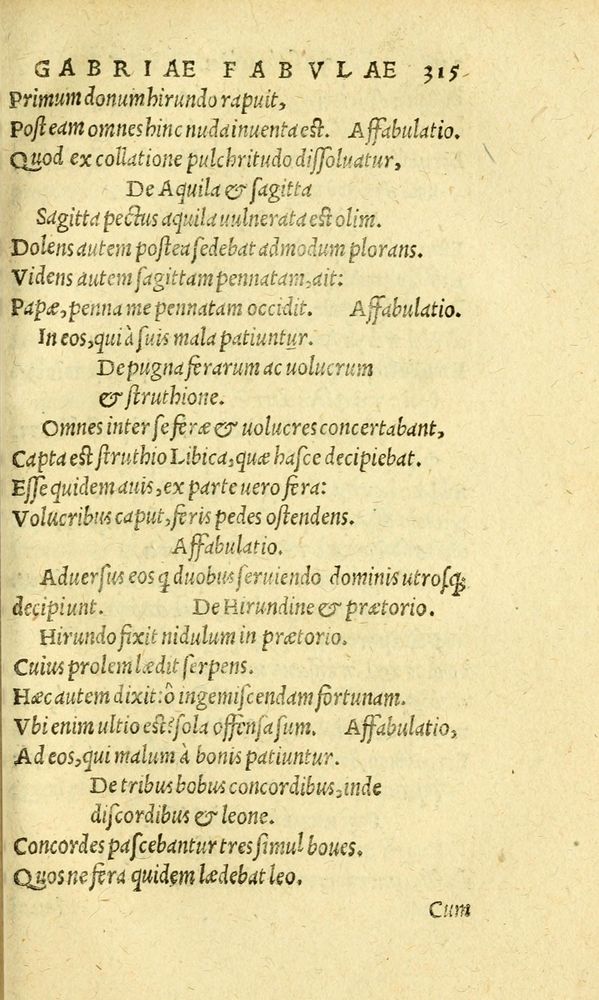 GABRIAE FABVLAE 315
Primum donum hirundo rapuit,
Post eam omnes hinc nuda inuenta est. Affabulatio.
Quod ex collatione pulchritudo dissoluatur,
De Aquila & sagitta
Sagitta pectus aquila uulnerata est olim.
Dolens autem postea sedebat admodum plorans.
Videns autem sagittam pennatam, ait:
Papæ, penna me pennatam occidit. Affabulatio.
In eos, qui à suis mala patiuntur.
De pugna ferarum ac uolucrum
& struthione.
Omnes inter se feræ & uolucres concertabant,
Capta est struthio Libica, quæ hasce decipiebat.
Esse quidem auis, ex parte uero fera:
Volucribus caput, feris pedes ostendens.
Affabulatio.
Aduersus eos q duobus seruiendo dominis utrosq;
decipiunt. De Hirundine & prætorio.
Hirundo fixit nidulum in prætorio.
Cuius prolem lædit serpens.
Hæc autem dixit: ô ingemiscendam fortunam.
Vbi enim ultio est? sola offensa sum. Affabulatio,
Ad eos, qui malum à bonis patiuntur.
De tribus bobus concordibus, inde
discordibus & leone.
Concordes pascebantur tres simul boues.
Quos ne fera quidem lædebat leo.
Cum